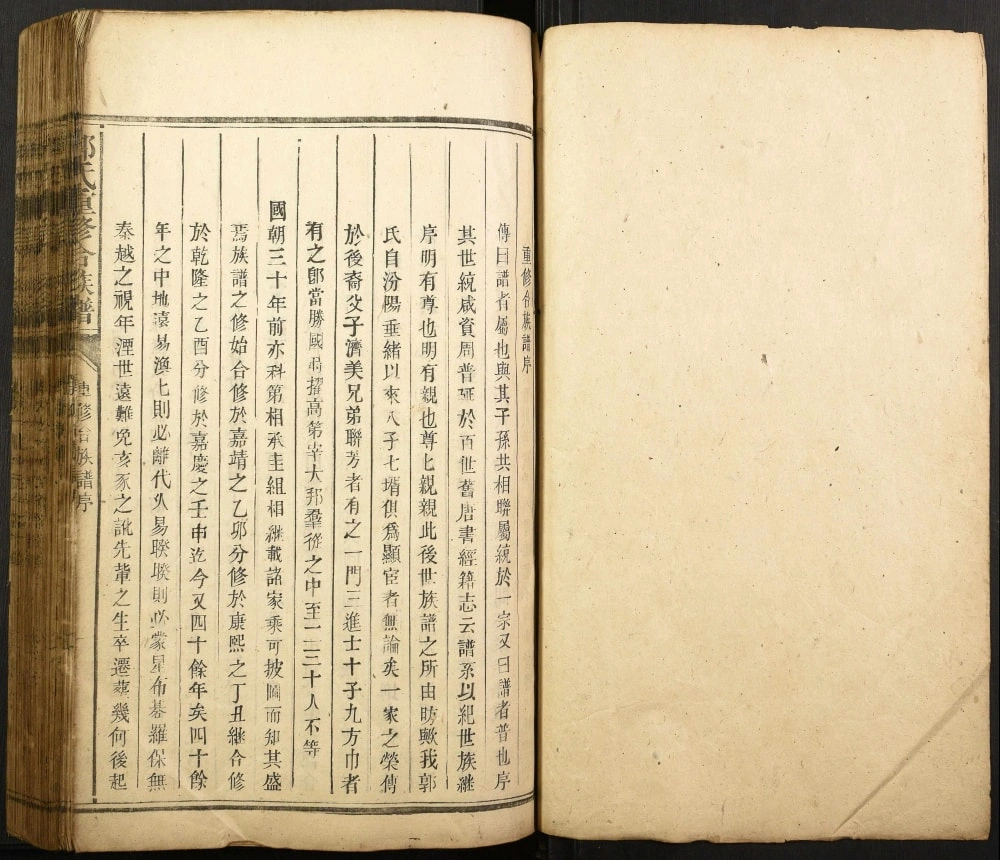 重修合族譜序
傳曰譜者屬也與其子孫共相聯屬統於一宗又曰譜者普也序
其世統咸資周普延於百世舊唐書經籍志云譜系以紀世族繼
序明有尊也明有親也尊匕親親此後世族譜之所由昉歟我郭
氏自汾陽垂緒以來八子七壻俱爲顯宦者無論矣一家之榮傳
於後裔父子濟美兄弟聯芳者有之一門三進士十子九方巾者
有之卽當勝國時擢高第宰大邦羣從之中至一二三十人不等
國朝三十年前亦科第相承圭組相繼載諸家乘可披圖而知其盛
焉族譜之修始合修於嘉靖之乙卯分修於康熙之丁丑繼合修
於乾隆之乙酉分修於嘉慶之壬申迄今又四十餘年矣四十餘
年之中地遠易渙匕則必離代久易暌暌則必蒙星布碁羅保無
秦越之視年湮世遠難免亥豕之訛先輩之生卒遷葬幾何後起
郭氏重修合族譜
重修合族譜序